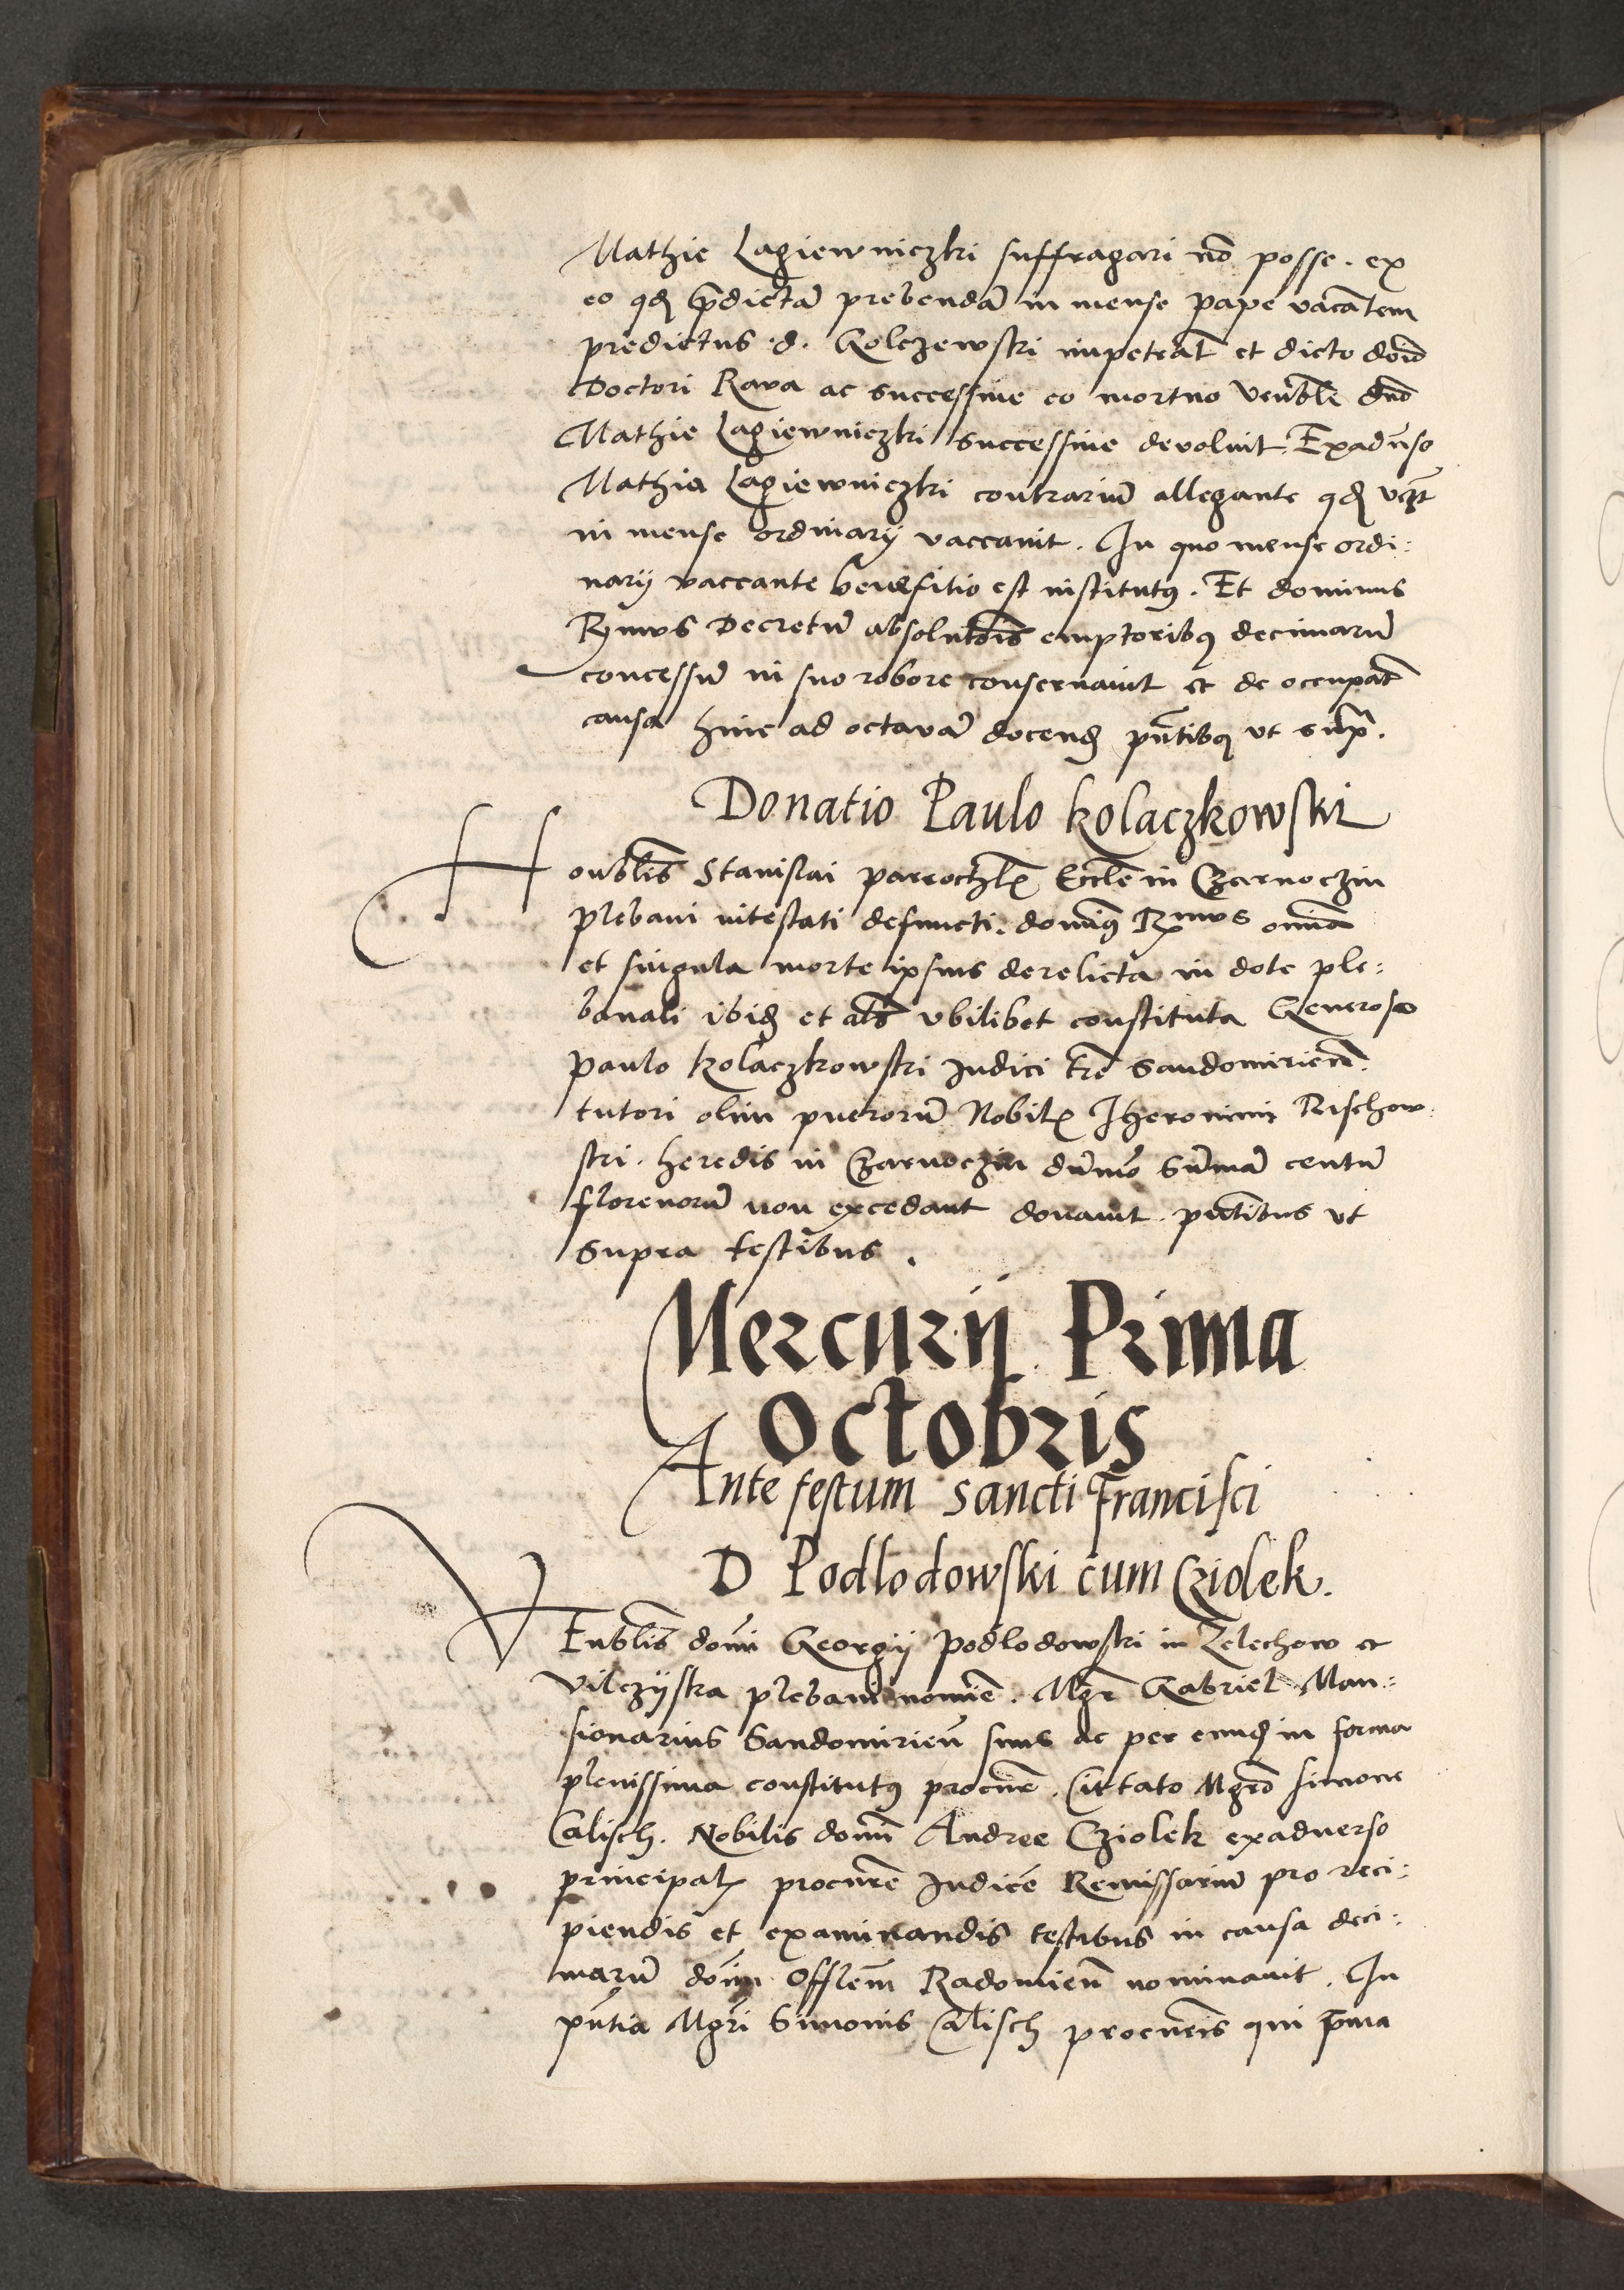 Mathie Lagiewniczki suffragari nō posse. ex
eo qd p̄dictā prebendā in mense pape vacātem
predictus .d. Golczewski impetrat̄ et dicto dōīo
Doctori Rava ac successiue eo mortuo Venēbli dn̄o
Mathie Lagiewniczki successiue devoluit. Exadūso
Mathia Lagiewniczki contrariū allegante qd vacāt
in mense ordinarij vaccauit. In quo mense ordi:
narij vaccante benefitio est institutꝯ. Et dominus
Rx̄mus Decretū absolutōis emptoribꝯ decimarū
concessū in suo robore conseruauit et de occupat̄
causa hinc ad octavā docend. pn̄tibꝯ vt sup̄ᵃ.
Donatio Paulo Kolaczkowski
Honēblis Stanislai parrochlꝭ Eccl̄ie in Czarnoczin
plebani intestati defuncti. dominꝯ Rx̄mus omīa
et singula morte ipsius derelicta in dote ple:
banali ibid et al̄s vbilibet constituta Generoso
Paulo Kolaczkowski Judici tr̄e Sandomirien̄.
tutori olim puerorū Nobilꝭ Iheronimi Rischow:
ski. heredis in Czarnoczin dūmō Sūmā centū
florenorū non excedant donauit. pn̄tibus vt
Supra testibus.
Mercurij Prima
Octobris
Ante festum sancti Francisci
D Podlodowski cum Cziolek.
VEnēblis dōmi Georgij Podlodowski in Zelechow et
Vilczijska plebani nomīe. Mgr̄ Gabriel Man:
sionarius Sandomirien̄ suus ac per eund in forma
plenissima constitutꝯ procur̄e. Cittato Mgr̄o Simone
Calisch. Nobilis dōmi Andree Cziolek exaduerso
principalꝭ procur̄e Judicē Remissariū pro reci:
piendis et examinandis testibus in causa deci:
marū dōīm Offlēm Radomien̄ nominauit. In
pn̄tia Mgr̄i Simonis Calisch procur̄is qui p̄ma